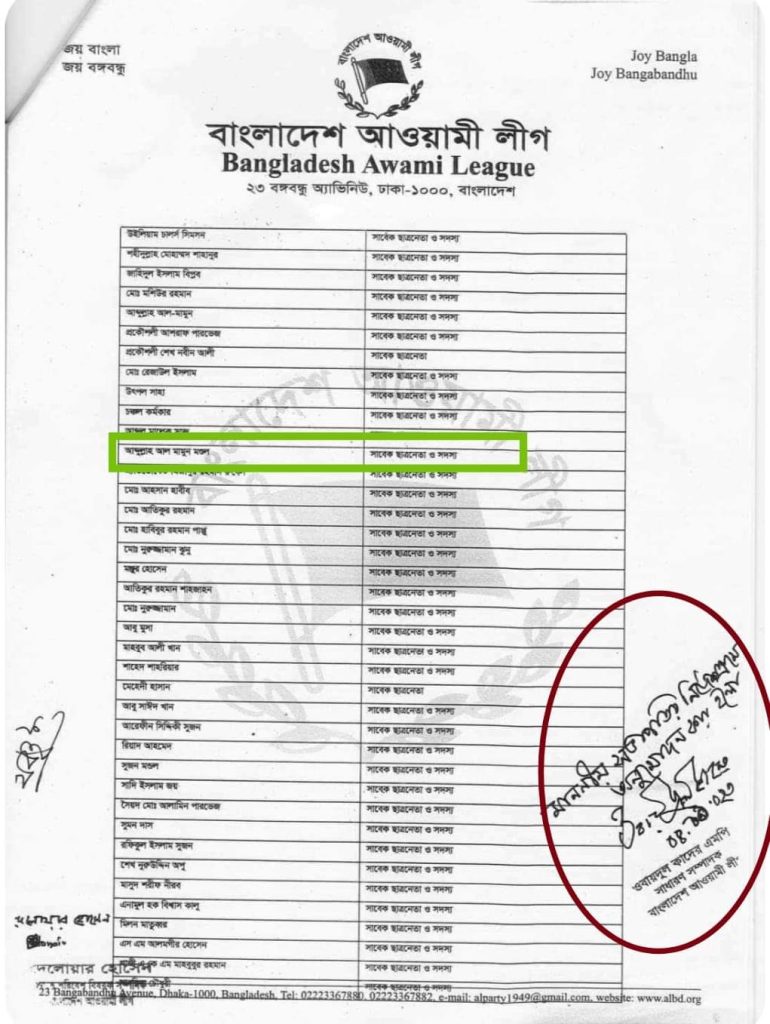 জয় বাংলা
জয় বঙ্গবন্ধু
Joy Bangla
Joy Bangabandhu
বাংলাদেশ আওয়ামী লীগ
বাংলাদেশ আওয়ামী লীগ
Bangladesh Awami League
২৩ বঙ্গবন্ধু অ্যাভিনিউ, ঢাকা-১০০০, বাংলাদেশ
উইলিয়াম চার্লস সিমসন সাবেক ছাত্রনেতা ও সদস্য
শহীদুল্লাহ মোহাম্মদ শাহানুর সাবেক ছাত্রনেতা ও সদস্য
জাহিদুল ইসলাম বিপ্লব সাবেক ছাত্রনেতা ও সদস্য
মোঃ মশিউর রহমান সাবেক ছাত্রনেতা ও সদস্য
আব্দুল্লাহ আল-মামুন সাবেক ছাত্রনেতা ও সদস্য
প্রকৌশলী আশরাফ পারভেজ সাবেক ছাত্রনেতা ও সদস্য
প্রকৌশলী শেখ নবীন আলী সাবেক ছাত্রনেতা
মোঃ রেজাউল ইসলাম সাবেক ছাত্রনেতা ও সদস্য
উৎপল সাহা সাবেক ছাত্রনেতা ও সদস্য
চঞ্চল কর্মকার সাবেক ছাত্রনেতা ও সদস্য
আব্দুল্লাহ আল মামুন মণ্ডল সাবেক ছাত্রনেতা ও সদস্য
রহমান সাবেক ছাত্রনেতা ও সদস্য
মোঃ আহসান হাবীব সাবেক ছাত্রনেতা ও সদস্য
মোঃ আতিকুর রহমান সাবেক ছাত্রনেতা ও সদস্য
মোঃ হাবিবুর রহমান পান্তু সাবেক ছাত্রনেতা ও সদস্য
মোঃ নুরুজ্জামান ঝুনু সাবেক ছাত্রনেতা ও সদস্য
মঞ্জুর হোসেন সাবেক ছাত্রনেতা ও সদস্য
আতিকুর রহমান শাহজাহান সাবেক ছাত্রনেতা ও সদস্য
মোঃ নুরুজ্জামান সাবেক ছাত্রনেতা ও সদস্য
আবু মুসা সাবেক ছাত্রনেতা ও সদস্য
মাহবুব আলী খান সাবেক ছাত্রনেতা ও সদস্য
শাহেদ শাহরিয়ার সাবেক ছাত্রনেতা ও সদস্য
মেহেদী হাসান সাবেক ছাত্রনেতা
আবু সাঈদ খান সাবেক ছাত্রনেতা ও সদস্য
আরেফীন সিদ্দিকী সুজন সাবেক ছাত্রনেতা ও সদস্য
রিয়াদ আহমেদ সাবেক ছাত্রনেতা ও সদস্য
সুজন মণ্ডল সাবেক ছাত্রনেতা ও সদস্য
সাদি ইসলাম জয় সাবেক ছাত্রনেতা ও সদস্য
সৈয়দ মোঃ আলামিন পারভেজ সাবেক ছাত্রনেতা ও সদস্য
সুমন দাস সাবেক ছাত্রনেতা ও সদস্য
রফিকুল ইসলাম সুজন সাবেক ছাত্রনেতা ও সদস্য
শেখ নুরুউদ্দিন অপু সাবেক ছাত্রনেতা ও সদস্য
মাসুদ শরীফ নীরব সাবেক ছাত্রনেতা ও সদস্য
এনামুল হক বিশ্বাস কালু সাবেক ছাত্রনেতা ও সদস্য
মিলন মাতুব্বর সাবেক ছাত্রনেতা ও সদস্য
এস এম আলমগীর হোসেন সাবেক ছাত্রনেতা ও সদস্য
কে এম মাহবুবুর রহমান সাবেক ছাত্রনেতা ও সদস্য
চৌধুরী সাবেক ছাত্রনেতা ও সদস্য
মাননীয় সভাপতির নির্দেশক্রমে
অনুমোদন করা হলো
০৪.০৯.০২৩
ওবায়দুল কাদের এমপি
সাধারণ সম্পাদক
বাংলাদেশ আওয়ামী লী
দেলোয়ার হোসেন
ও পরিবেশ বিষয়ক
23 Bangabandhu Avenue, Dhaka-1000, Bangladesh, Tel: 02223367880, 02223367882, e-mail: alparty1949@gmail.com, website: www.albd.org
বাংলাদেশ আওয়ামী লীগ